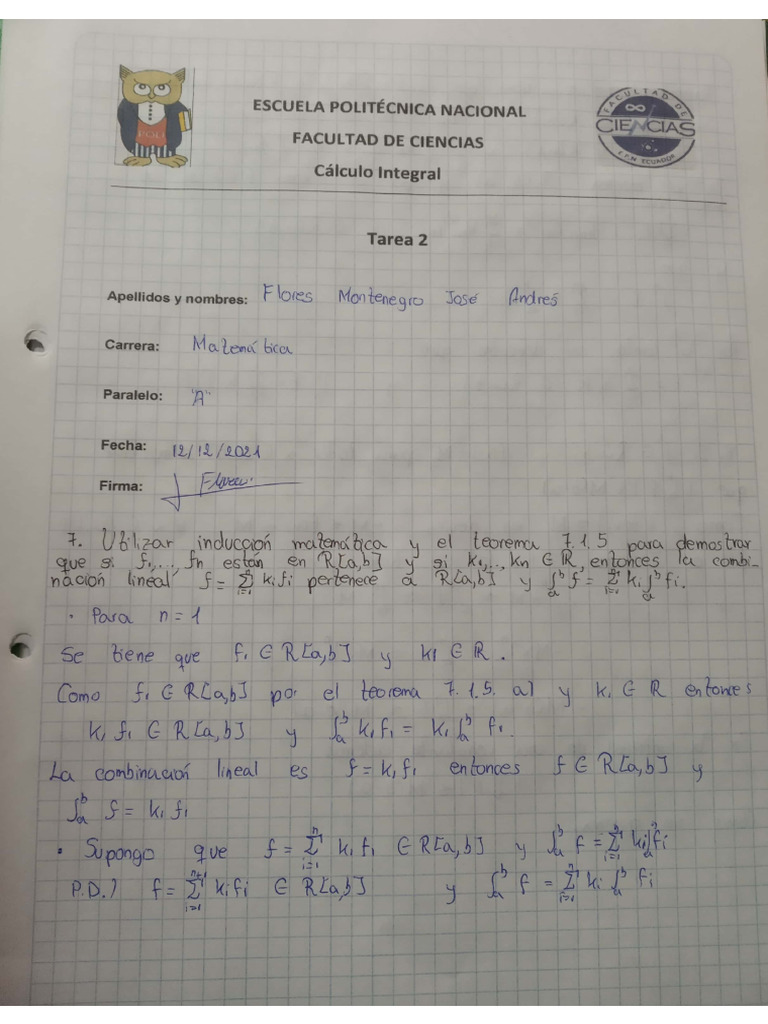 POLI
ESCUELA POLITÉCNICA NACIONAL
FACULTAD DE CIENCIAS
Cálculo Integral
FACULTAD DE
CIENCIAS
E.P.N ECUADOR
Tarea 2
Apellidos y nombres: Flores Montenegro José Andrés
Carrera: Matemática
Paralelo: "A"
Fecha: 12/12/2021
Firma:
7. Utilizar inducción matemática y el teorema 7.1.5 para demostrar
que si f₁,..., fn están en R[a,b] y si k₁,..., kn ∈ R, entonces la combi-
nación lineal f = Σⁿᵢ₌₁ kᵢfᵢ pertenece a R[a,b] y ∫ₐᵇ f = Σⁿᵢ₌₁ kᵢ ∫ₐᵇ fᵢ.
• Para n = 1
Se tiene que f₁ ∈ R[a,b] y k₁ ∈ R.
Como f₁ ∈ R[a,b] por el teorema 7.1.5. a) y k₁ ∈ R entonces
k₁ f₁ ∈ R[a,b] y ∫ₐᵇ k₁f₁ = k₁∫ₐᵇ f₁.
La combinación lineal es f = k₁f₁ entonces f ∈ R[a,b] y
∫ₐᵇ f = k₁f₁
• Supongo que f = Σⁿᵢ₌₁ kᵢ fᵢ ∈ R[a,b] y ∫ₐᵇ f = Σⁿᵢ₌₁ kᵢ∫ₐᵇ fᵢ
P.D.) f = Σⁿ⁺¹ᵢ₌₁ kᵢfᵢ ∈ R[a,b] y ∫ₐᵇ f = Σⁿᵢ₌₁ kᵢ ∫ₐᵇ fᵢ